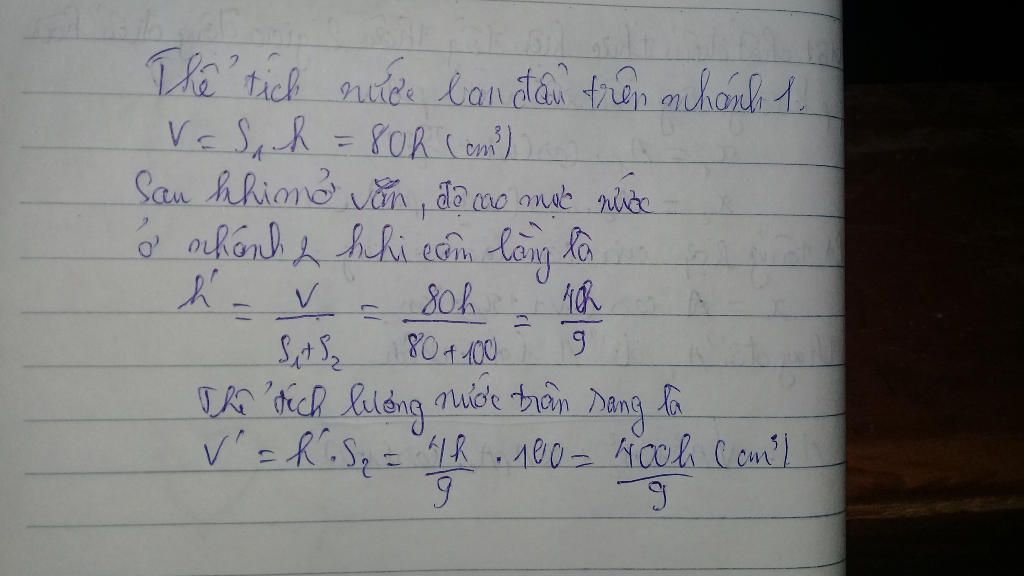 Thể tích nước ban đầu trên nhánh 1.
V = S₁.h = 80h (cm³)
Sau khi mở van, độ cao mực nước
ở nhánh 2 khi cân bằng là
h' = V/(S₁+S₂) = 80h/(80+100) = 4h/9
Thể tích lượng nước tràn sang là
V' = h'.S₂ = 4h/9 . 100 = 400h/9 (cm³)